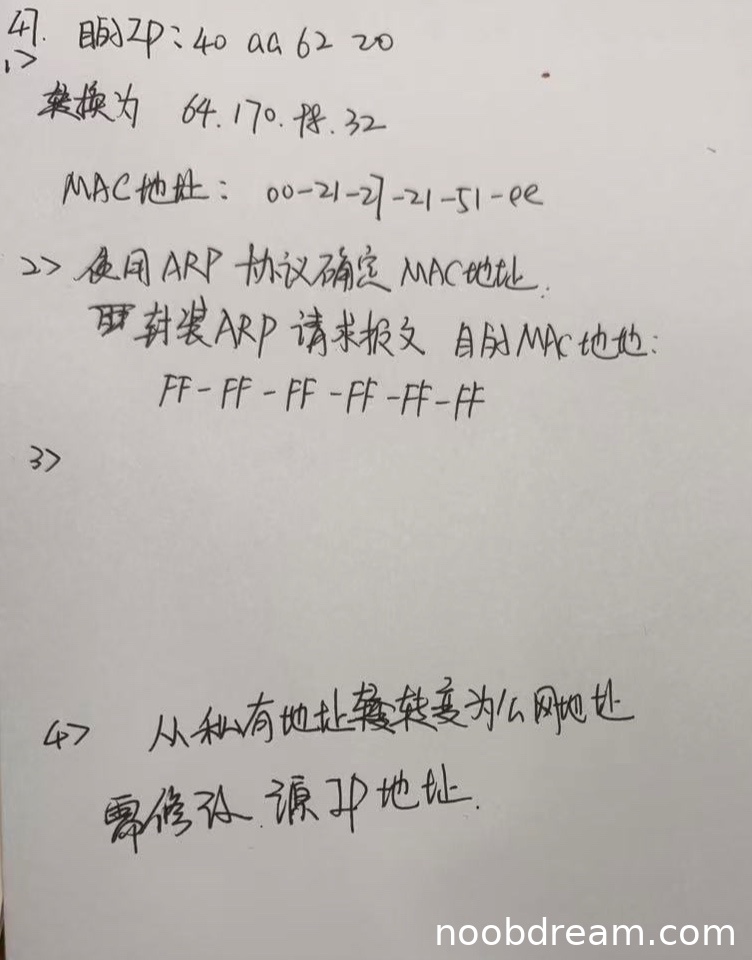 47. 目的IP：40 aa 62 20
1>
转换为 64.170.98.32
MAC地址： 00-21-27-21-51-ee
2> 使用ARP 协议确定 MAC地址.
封装ARP 请求报文 目的MAC地地：
FF-FF-FF-FF-FF-FF
3>
4> 从私有地址转变为公网地址
需修改 源IP地址.
noobdream.com